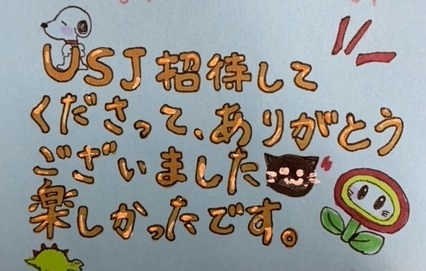 USJ招待して
くださって、ありがとう
ございました
楽しかったです。